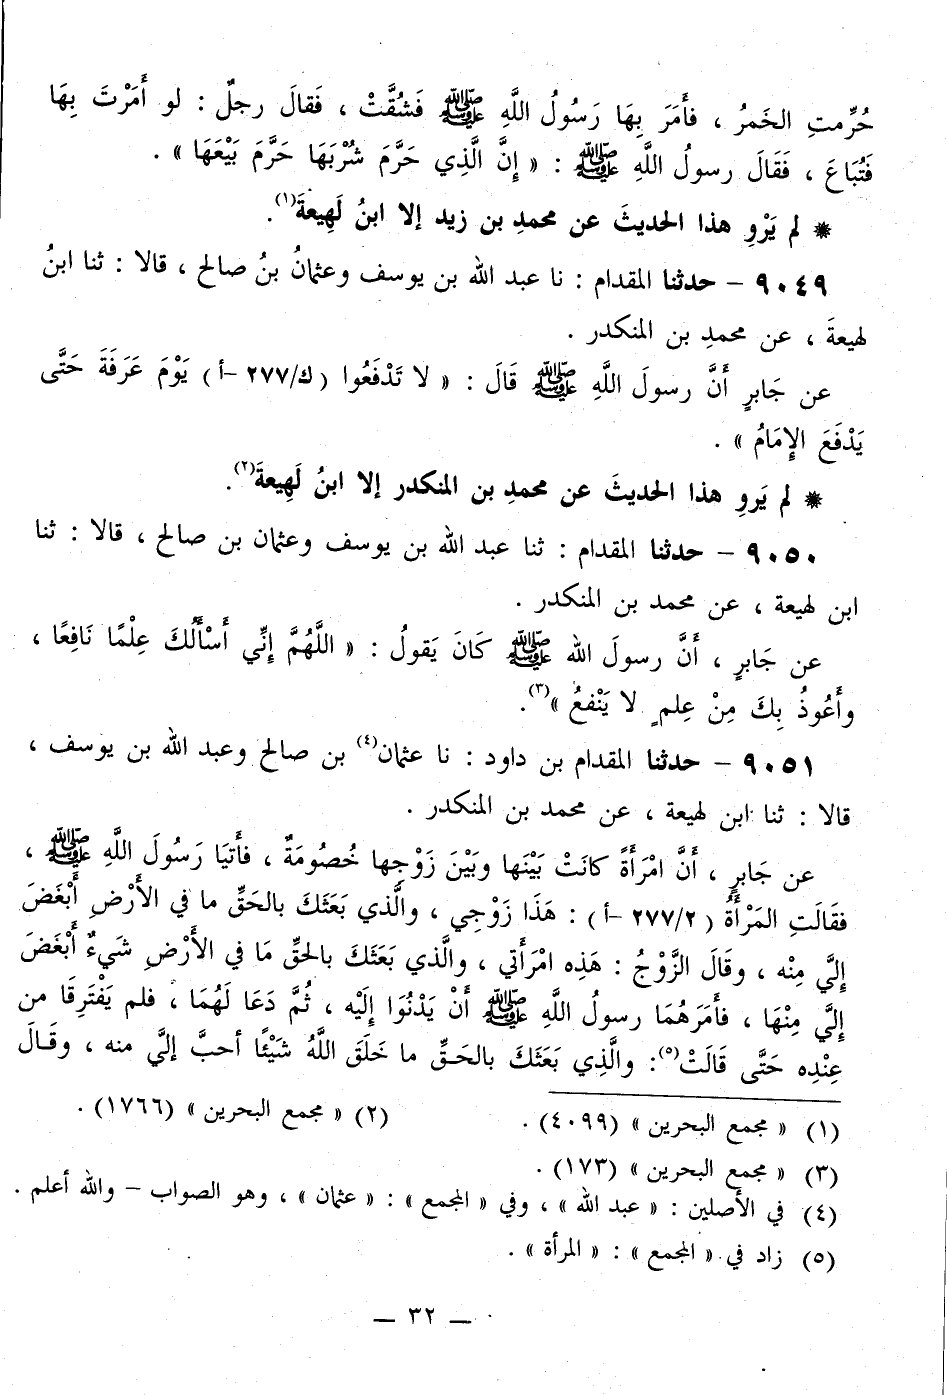 حُرِّمتِ الخَمرُ ، فأَمَرَ بِهَا رَسُولُ اللَّهِ ﷺ فَشُقَّتْ ، فَقالَ رجلٌ : لو أَمَرْتَ بِهَا
فَتُبَاعَ ، فَقَالَ رسولُ اللَّهِ ﷺ : « إِنَّ الَّذِي حَرَّمَ شُرْبَهَا حَرَّمَ بَيْعَهَا » .
* لم يَرْوِ هذا الحديثَ عن محمدِ بن زيد إلا ابنُ لَهِيعةَ(١).
٩٠٤٩ – حدثنا المقدام : نا عبد الله بن يوسف وعثمانُ بنُ صالح ، قالا : ثنا ابنُ
لهيعةَ ، عن محمدِ بن المنكدر .
عن جَابرٍ أَنَّ رسولَ اللَّهِ ﷺ قَالَ : « لا تَدْفَعُوا (ك/٢٧٧ -أ) يَوْمَ عَرَفَةَ حَتَّى
يَدْفَعَ الإِمَامُ » .
* لم يَروِ هذا الحديثَ عن محمدِ بن المنكدر إلا ابنُ لَهِيعةَ(٢).
٩٠٥٠ – حدثنا المقدام : ثنا عبد الله بن يوسف وعثمان بن صالح ، قالا : ثنا
ابن لهيعة ، عن محمد بن المنكدر .
عن جَابرٍ ، أَنَّ رسولَ الله ﷺ كَانَ يَقولُ : « اللَّهُمَّ إِنِّي أَسْأَلُكَ عِلْمًا نَافِعًا ،
وأَعُوذُ بِكَ مِنْ عِلمٍ لا يَنْفعُ »(٣).
٩٠٥١ – حدثنا المقدام بن داود : نا عثمان(٤) بن صالح وعبد الله بن يوسف ،
قالا : ثنا ابن لهيعة ، عن محمد بن المنكدر .
عن جَابرٍ ، أَنَّ امْرَأَةً كانَتْ بَيْنَها وبَيْنَ زَوْجِها خُصُومَةٌ ، فأَتيَا رَسُولَ اللَّهِ ﷺ ،
فقَالَتِ المَرْأَةُ (٢٧٧/٢ -أ) : هَذَا زَوْجِي ، والَّذي بَعَثَكَ بالحَقِّ ما في الأَرْضِ أَبْغَضَ
إِلَيَّ مِنْه ، وقَالَ الزَّوْجُ : هَذِه امْرَأَتي ، والَّذي بَعَثَكَ بالحقِّ مَا في الأَرْضِ شَيءٌ أَبْغَضَ
إِلَيَّ مِنْهَا ، فأَمَرَهُمَا رسولُ اللَّهِ ﷺ أَنْ يَدْنُوَا إِلَيْه ، ثُمَّ دَعَا لَهُمَا ، فلم يَفْتَرِقَا من
عِنْدِه حَتَّى قَالَتْ(٥): والَّذِي بَعَثَكَ بالحَقِّ ما خَلَقَ اللَّهُ شَيْئًا أحبَّ إليَّ منه ، وقَالَ
(١) « مجمع البحرين » (٤٠٩٩) . (٢) « مجمع البحرين » (١٧٦٦) .
(٣) « مجمع البحرين » (١٧٣) .
(٤) في الأصلين : « عبد الله » ، وفي « المجمع » : « عثمان » ، وهو الصواب – والله أعلم .
(٥) زاد في « المجمع » : « المرأة » .
— ٣٢ —